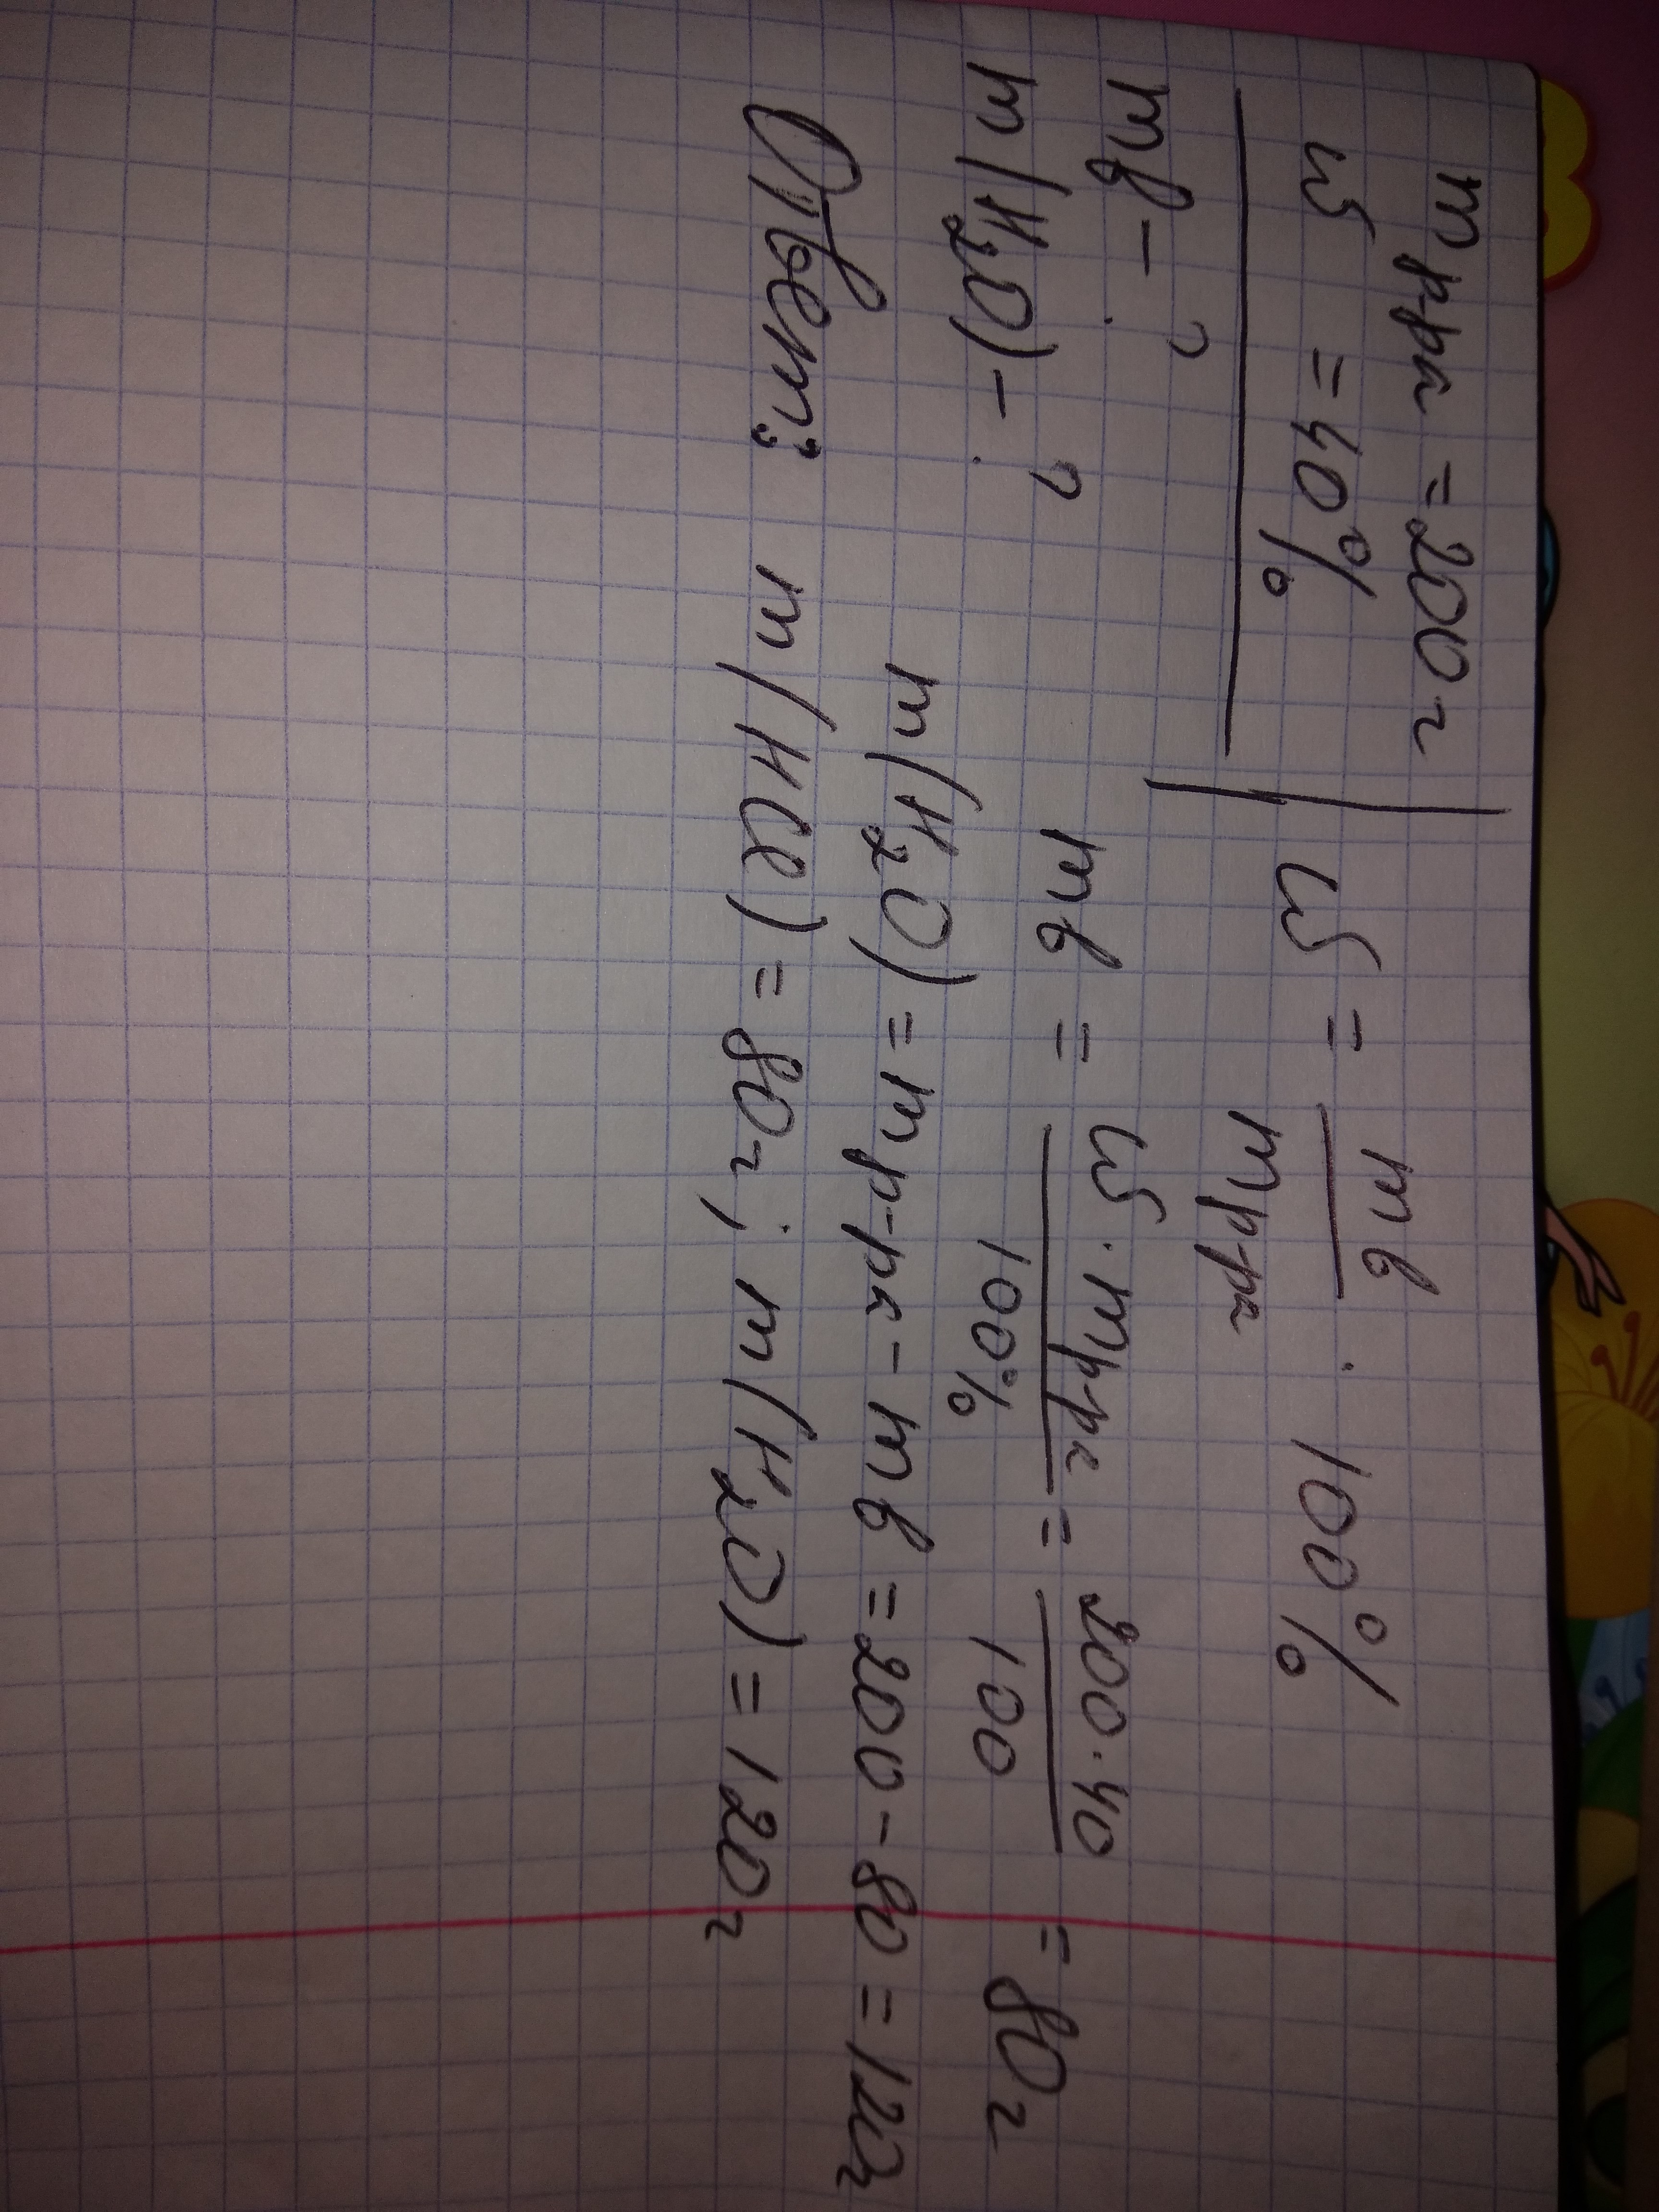 mр-ра = 200 г
ω = 40%
mв - ?
m(H₂O) - ?
ω = mв / mр-ра · 100%
mв = ω · mр-ра / 100% = 200 · 40 / 100 = 80 г
m(H₂O) = mр-ра - mв = 200 - 80 = 120 г
Ответ: m(HCl) = 80 г; m(H₂O) = 120 г